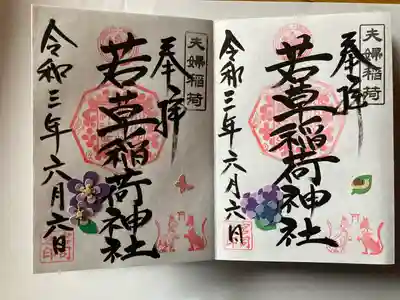 夫婦稲荷
奉拝
若草稲荷神社
令和三年六月六日
奉拝
若草稲荷神社
令和三年六月六日